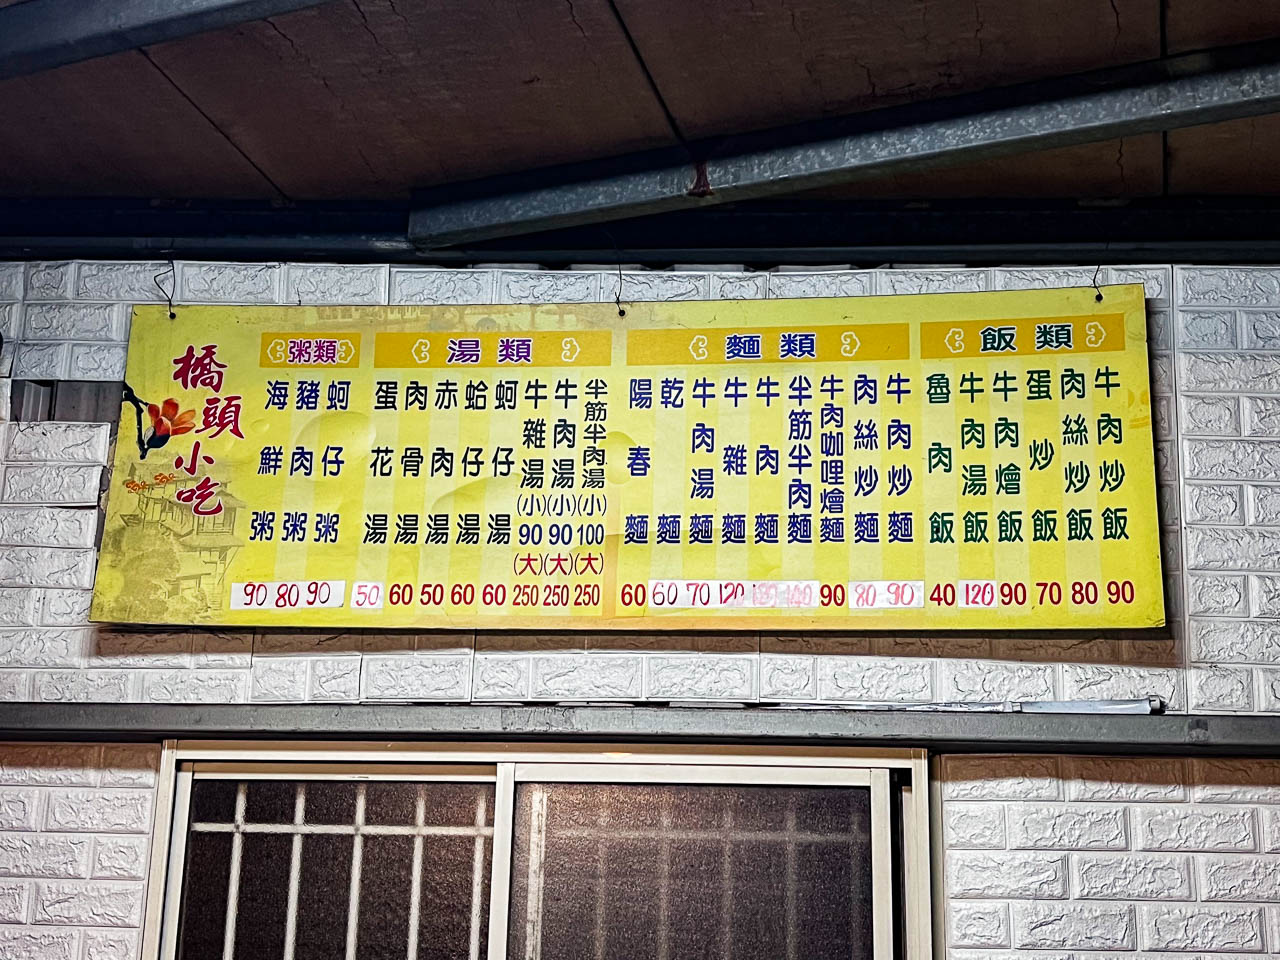 橋頭小吃
粥類
海鮮粥 90
豬肉粥 80
蚵仔粥 90
湯類
蛋花湯 50
肉骨湯 60
赤肉湯 50
蛤仔湯 60
蚵仔湯 60
牛雜湯(小)90(大)250
牛肉湯(小)90(大)250
半筋半肉湯(小)100(大)250
麵類
陽春麵 60
乾麵 60
牛肉湯麵 70
牛雜麵 120
牛肉麵
半筋半肉麵
牛肉咖哩燴麵 90
肉絲炒麵 80
牛肉炒麵 90
飯類
魯肉飯 40
牛肉湯飯 120
牛肉燴飯 90
蛋炒飯 70
肉絲炒飯 80
牛肉炒飯 90